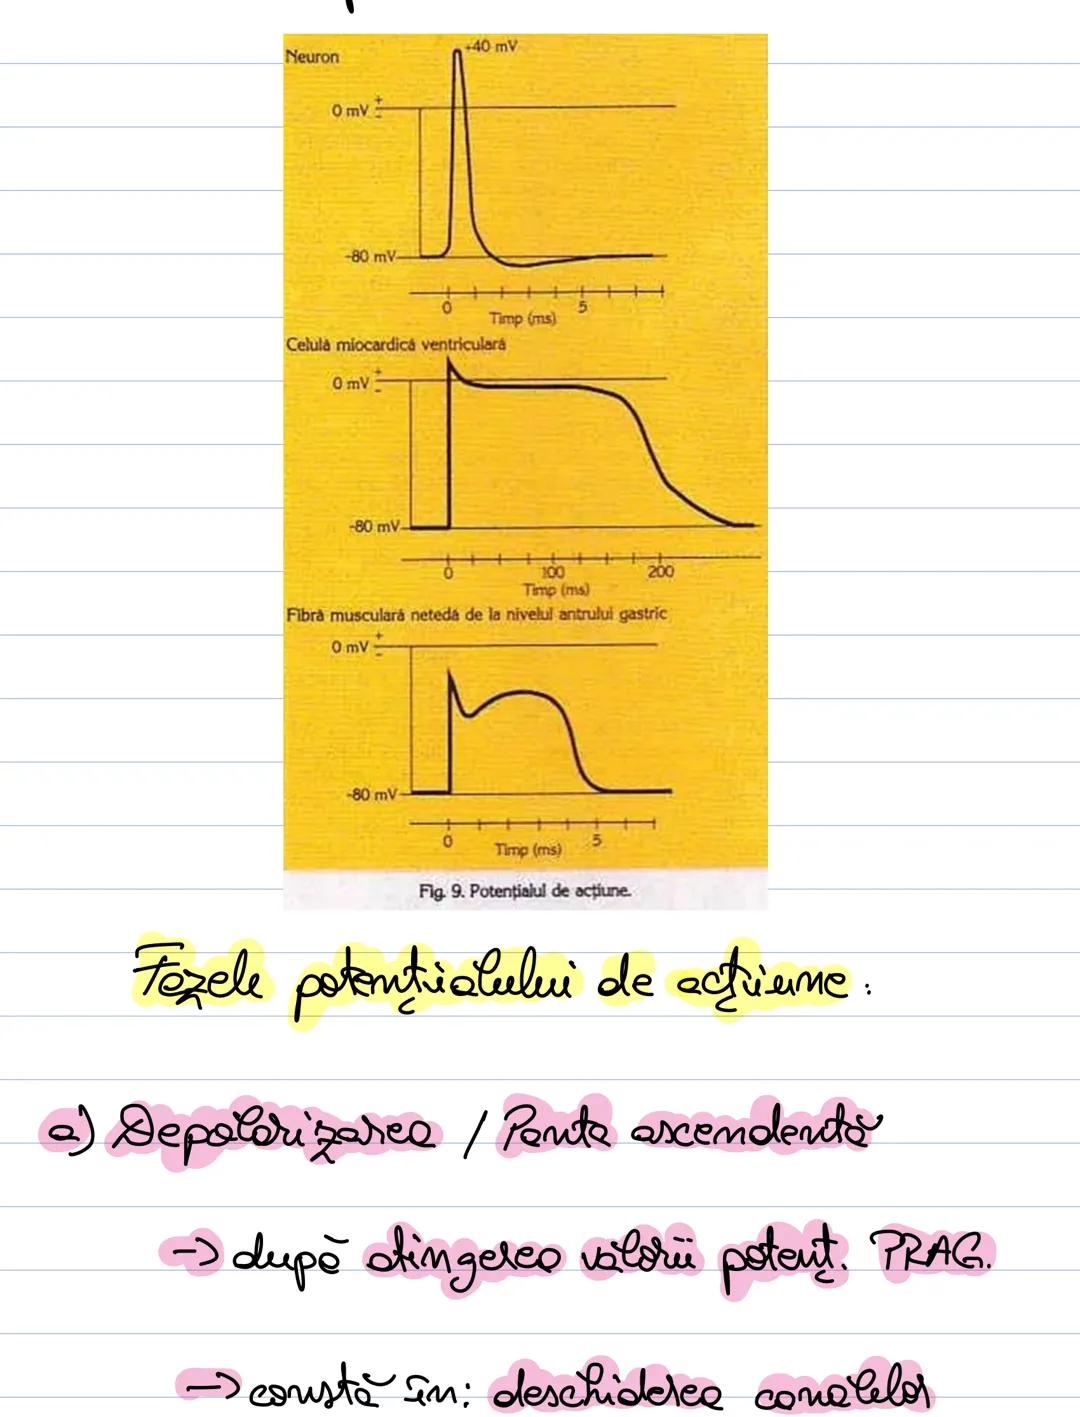 Neuron
+40 mV
0 mV + -
-80 mV
0 5
Timp (ms)
Celulă miocardică ventriculară
0 mV + -
-80 mV
0 100 200
Timp (ms)
Fibră musculară netedă de la nivelul antrului gastric
0 mV + -
-80 mV
0 5
Timp (ms)
Fig. 9. Potenţialul de acţiune.
Fazele potențialului de acțiune:
a) Depolarizarea / Panta ascendentă
-> după atingerea valorii potenț. PRAG.
-> constă în: deschiderea canalelor